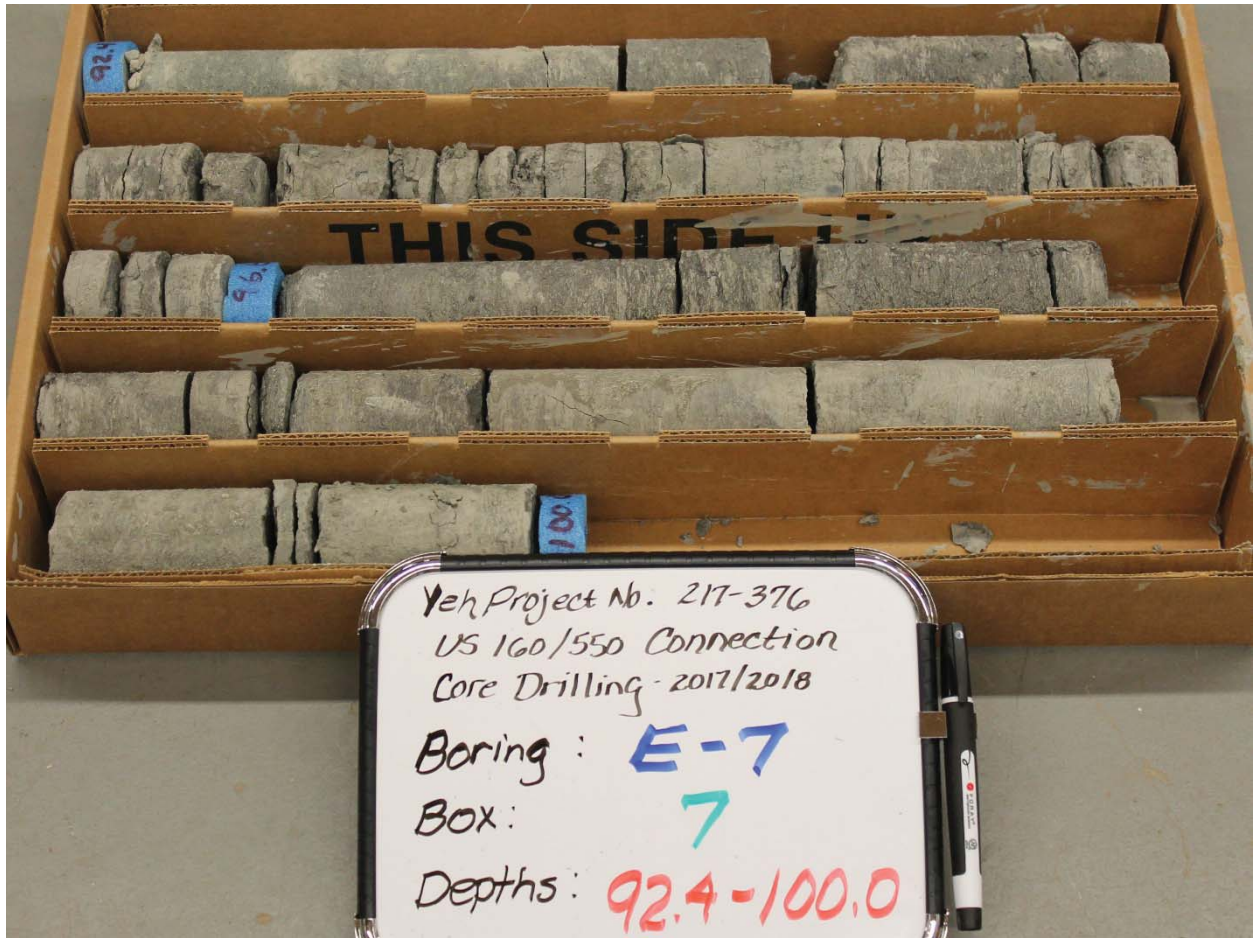 92.4
THIS SIDE UP
96.
100.
Yeh Project No. 217-376
US 160/550 Connection
Core Drilling - 2017/2018
Boring: E-7
Box: 7
Depths: 92.4-100.0
FORAY